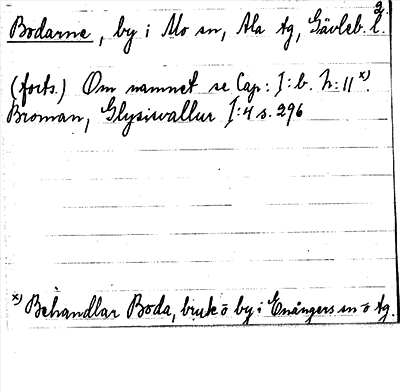 2.
Bodarne, by i Mo sn, Ala tg, Gävleb. l.
(forts.) Om namnet se Cap: I: b. h: 11 x).
Broman, Glysisvallur I: 4 s. 296
x) Behandlar Boda, bruk o by i Enångers sn o tg.